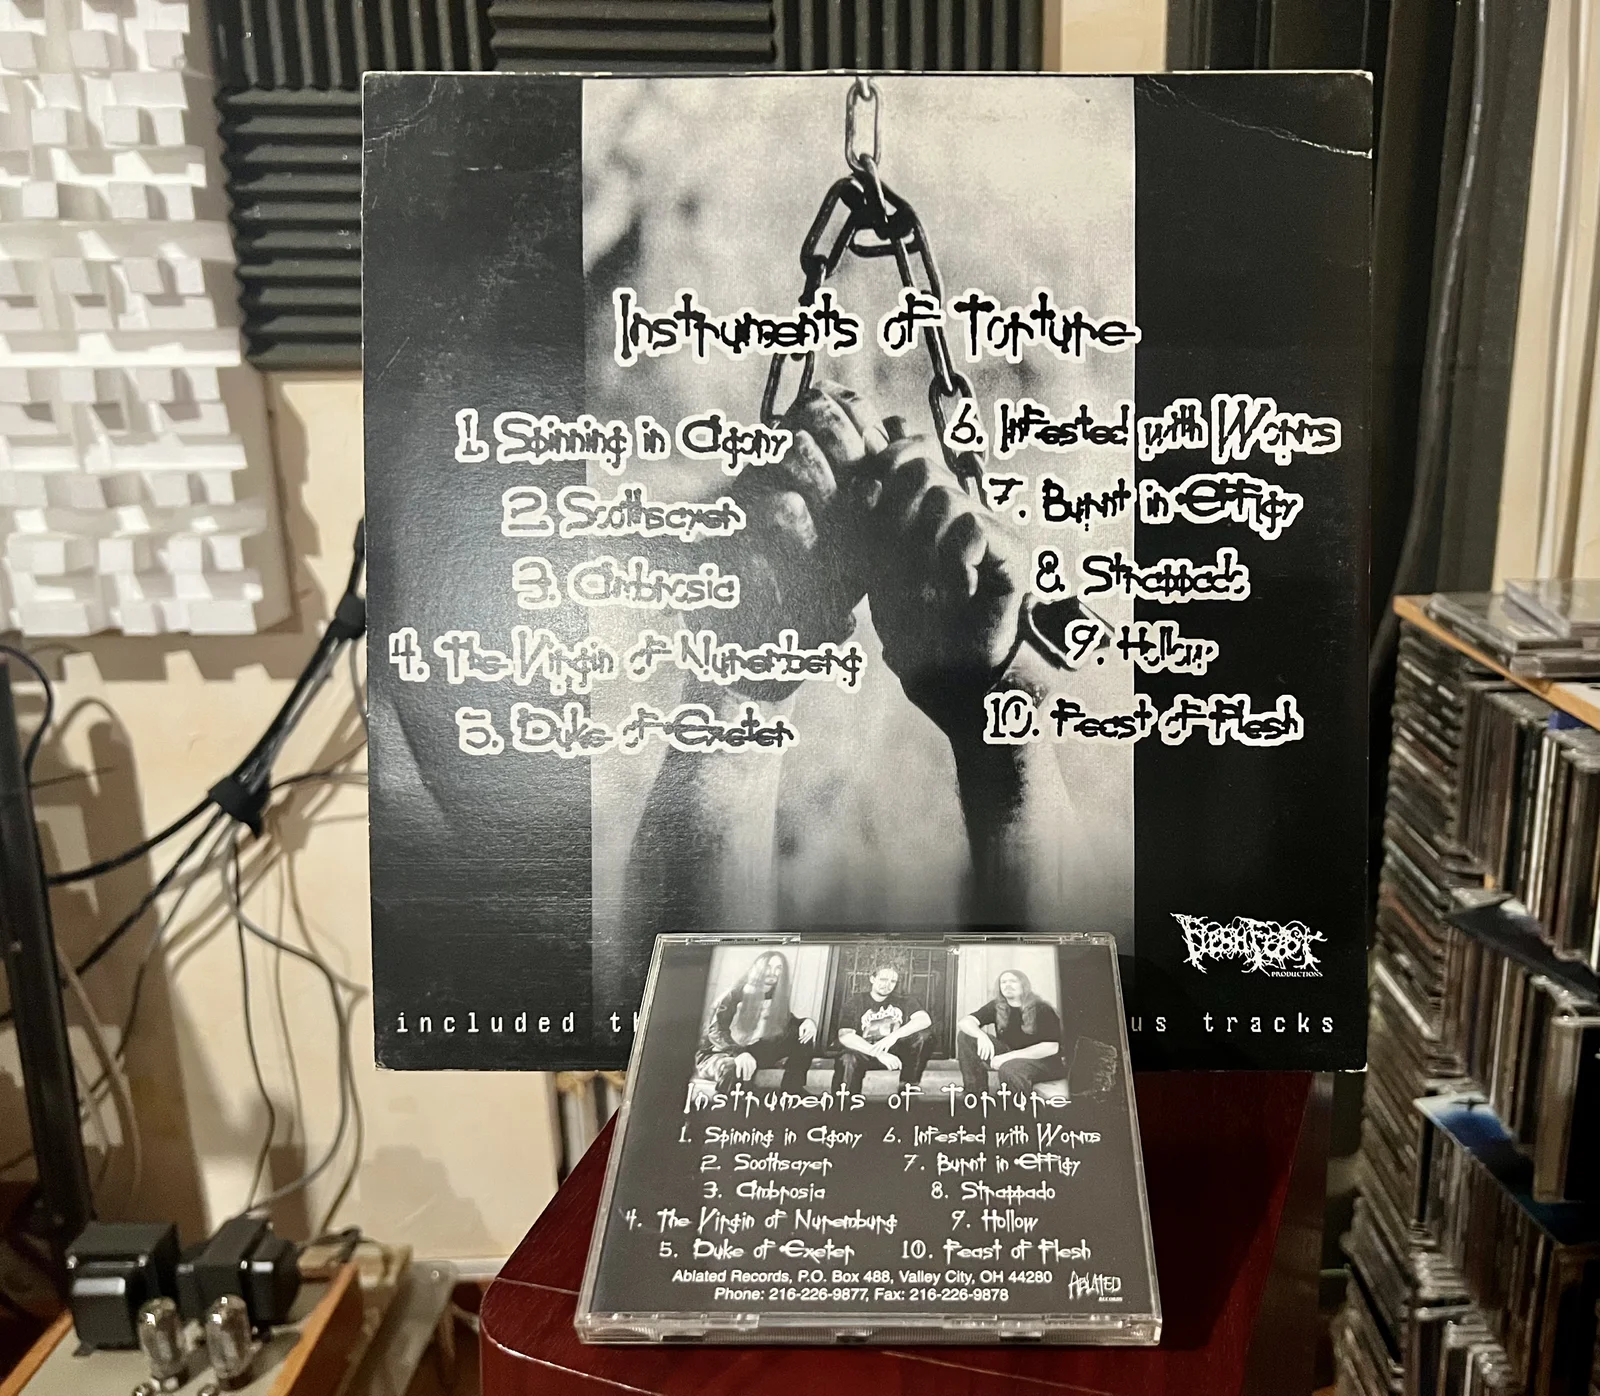 Instruments of Torture
1. Spinning in Agony
2. Soothsayer
3. Ambrosia
4. The Virgin of Nuremberg
5. Duke of Exeter
6. Infested with Worms
7. Burnt in Effigy
8. Strappado
9. Hollow
10. Feast of Flesh
FleshFeast
PRODUCTIONS
included th
us tracks
Instruments of Torture
1. Spinning in Agony
2. Soothsayer
3. Ambrosia
4. The Virgin of Nuremburg
5. Duke of Exeter
6. Infested with Worms
7. Burnt in Effigy
8. Strappado
9. Hollow
10. Feast of Flesh
Ablated Records, P.O. Box 488, Valley City, OH 44280
Phone: 216-226-9877, Fax: 216-226-9878
ABLATED
RECORDS